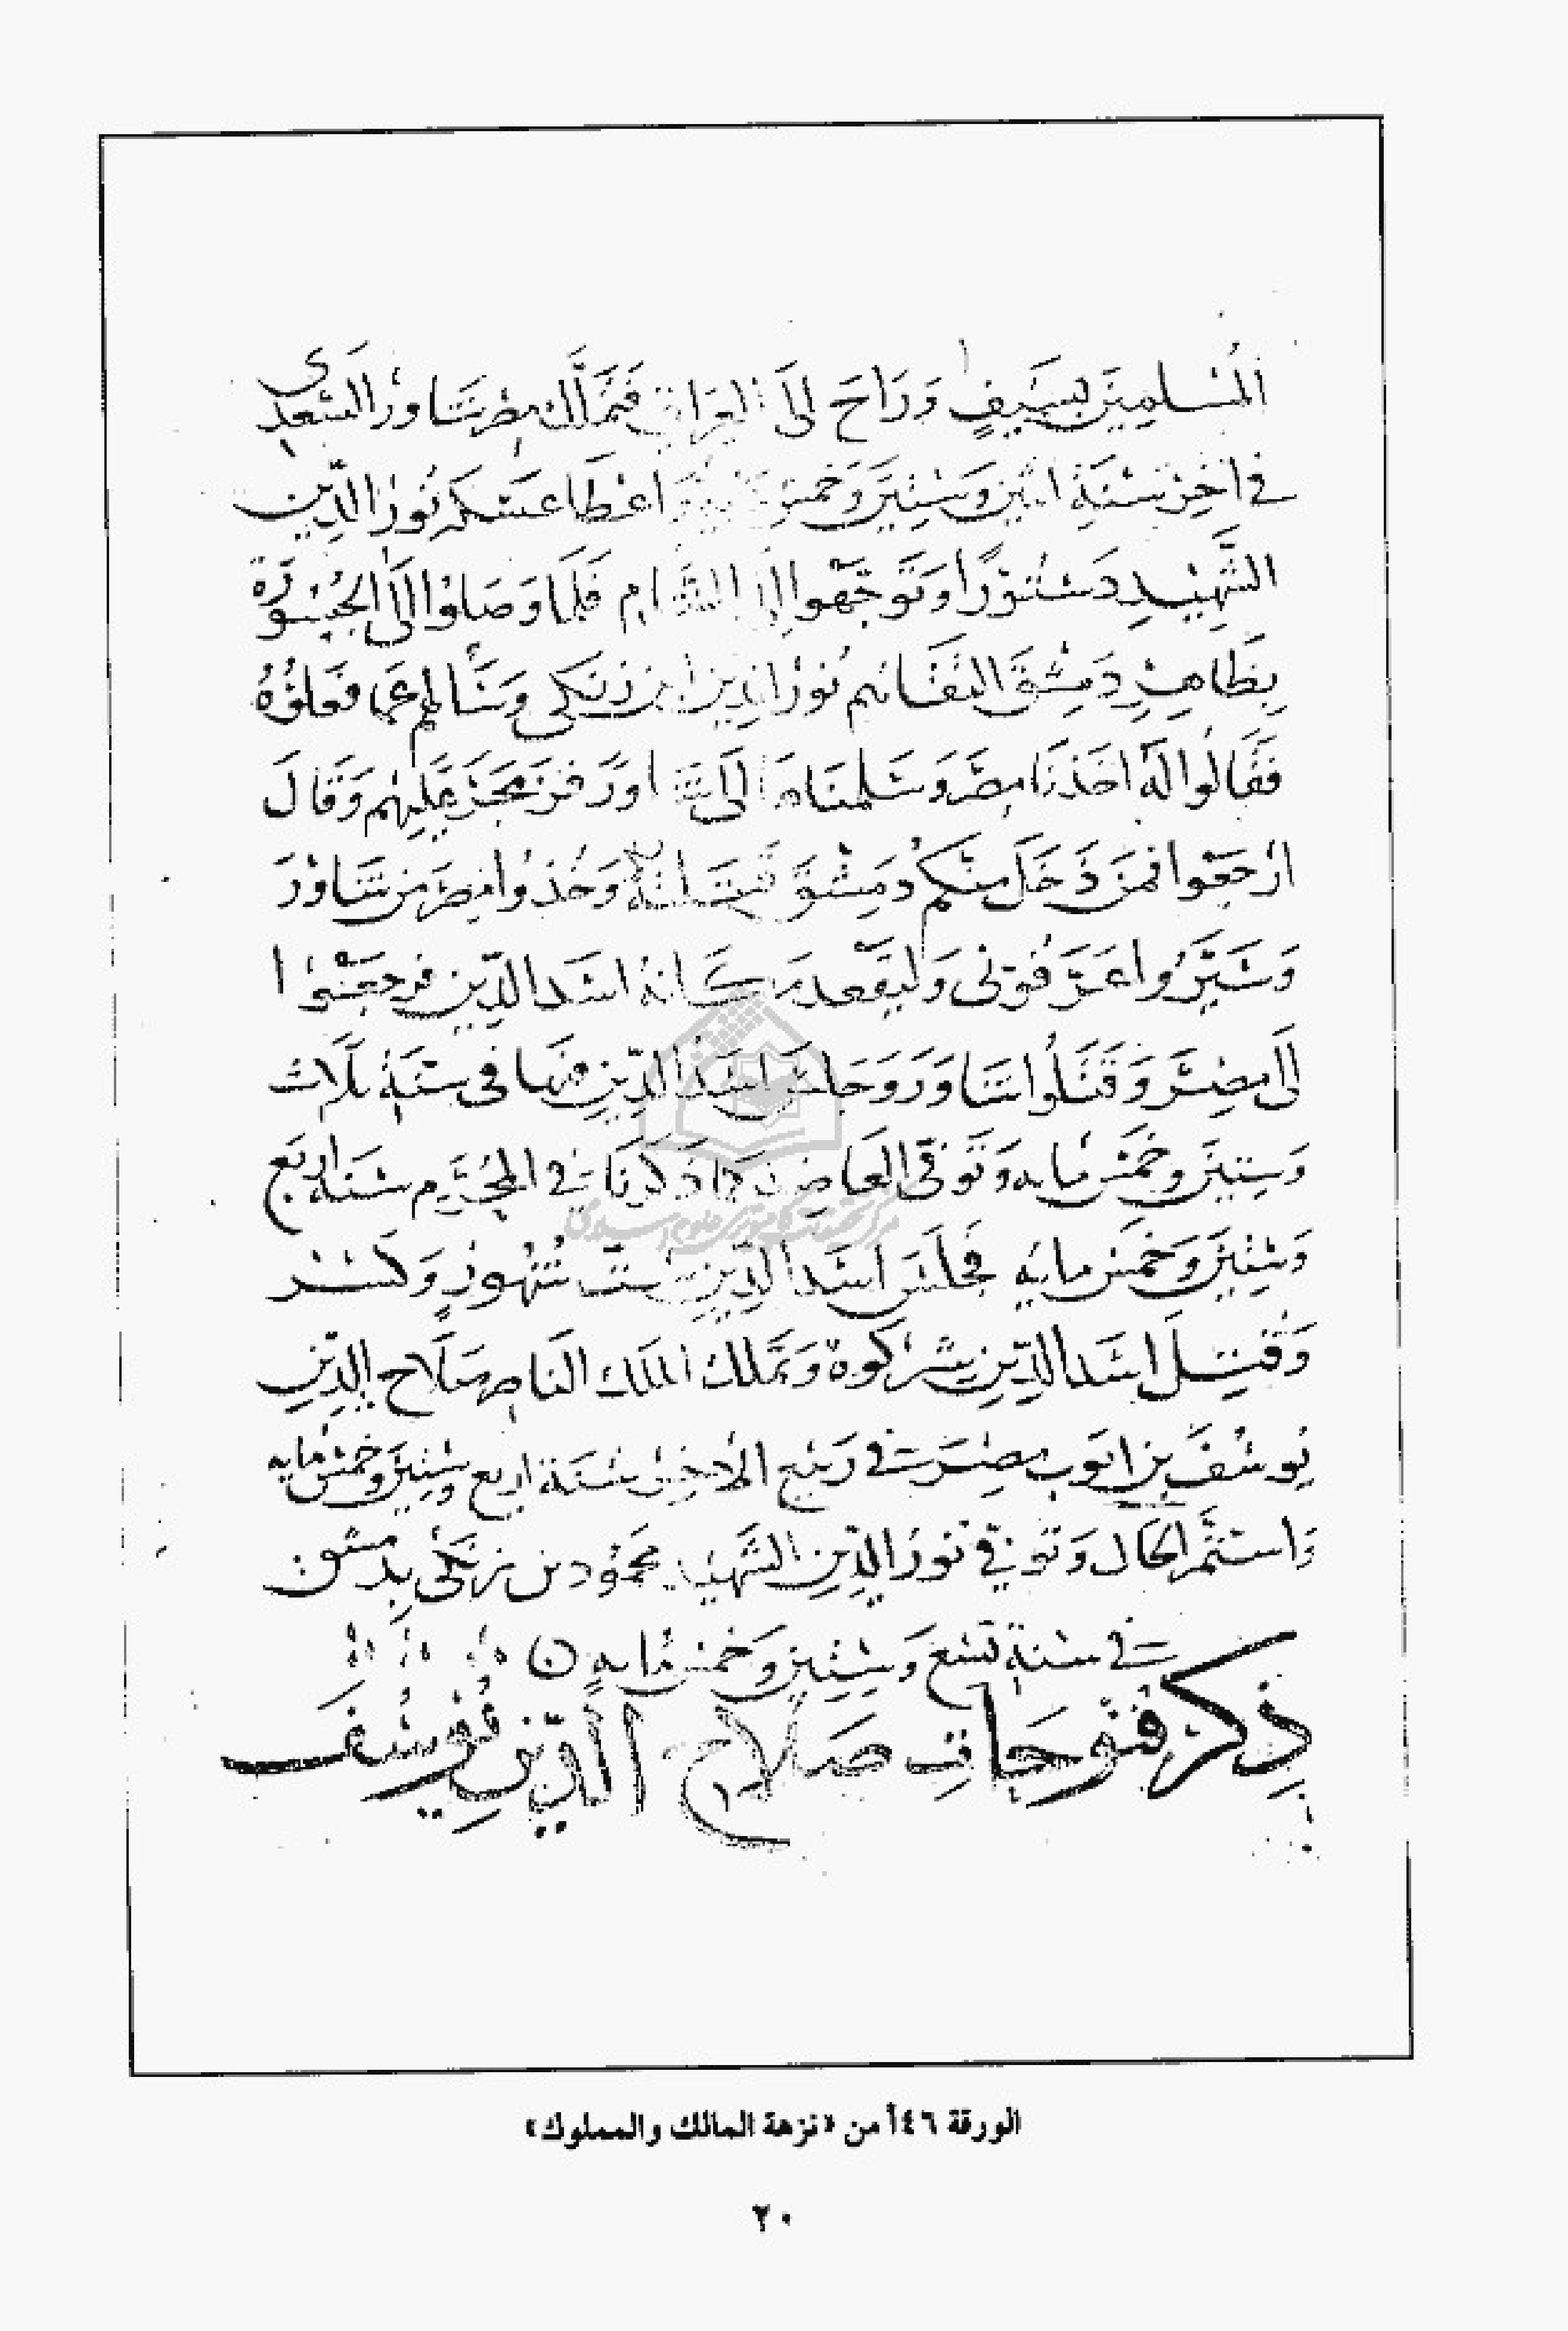 المُسلِمِينَ بِسَيفٍ وَرَاحَ إلَى العِرَاقِ فَتَمَلَّكَ مِصر شَاوَر السَّعدِى
فى اخِر سَنَةِ اثنين وَسِتِينَ وَخَمس وَاعْطَا عَسكر نُورُ الدِّين
الشَّهِيْدِ دَسْتوْرًا وَتَوَجَّهوا إلى الشَّام فَلَمَا وَصَلوْا إلَى الجُسُورَة
بِظَاهِرِ دِمَشقَ التقَاهُم نُورُ الدِين ابن زنكى وَسَالهم عَما فَعَلوْهُ
فَقَالُوا لَهُ اخَذنَا مِصرَ وَسَلمنَاهَا إلَى شَاورَ فحَرَجَ عَلَيهْم وَقَالَ
ارْجعُوا فمَن دَخَلَ مِنكم دِمِشْقَ قتلتهُ وَخُذوُا مِصَر مِن شَاوْرَ
وَسَيِّرُوا عَرِّفوُنى وَليقعد مَكَانهُ اسَد الدِّين فرجَعُوا
إلَى مِصرَ وَقَتَلُوا شَاوَرَ وَجلسَ اسَدُ الدِّينِ فيها فى سَنَةِ ثلَاث
وَستينَ وخمَسْ مايه وَتَوفى العَاضِد كَمَا ذَكَرنَا فى المُحَرَّم سَنَة اربَع
وَسِتينَ وَخَمسْ مايه فَجَلَسَ اسَد الدِّين سِتّ شُهُورٍ وَكسر
وَقُتِلَ اسَد الدِّين شِيْركوه وَتَملك الملَك الناصِر صَلَاح الدِّين
يُوسُفَ بن ايوَب مِصرَ فى رَبيْع الاخِر سَنَة اربع وسِتِينَ وخمسْ مايه
وَاستَمَّر الحَال وَتوفى نورُ الدِّين الشَّهيْد محمُود بن زنكى بِدِمشق
فى سَنة تسْع وَسِتِين وَخمسْ مايه
ذِكر فتوحَاتِ صَلَاحِ الدِّين يُوسُف
الورقة ٤٦أ من «نزهة المالك والمملوك»
٢٠